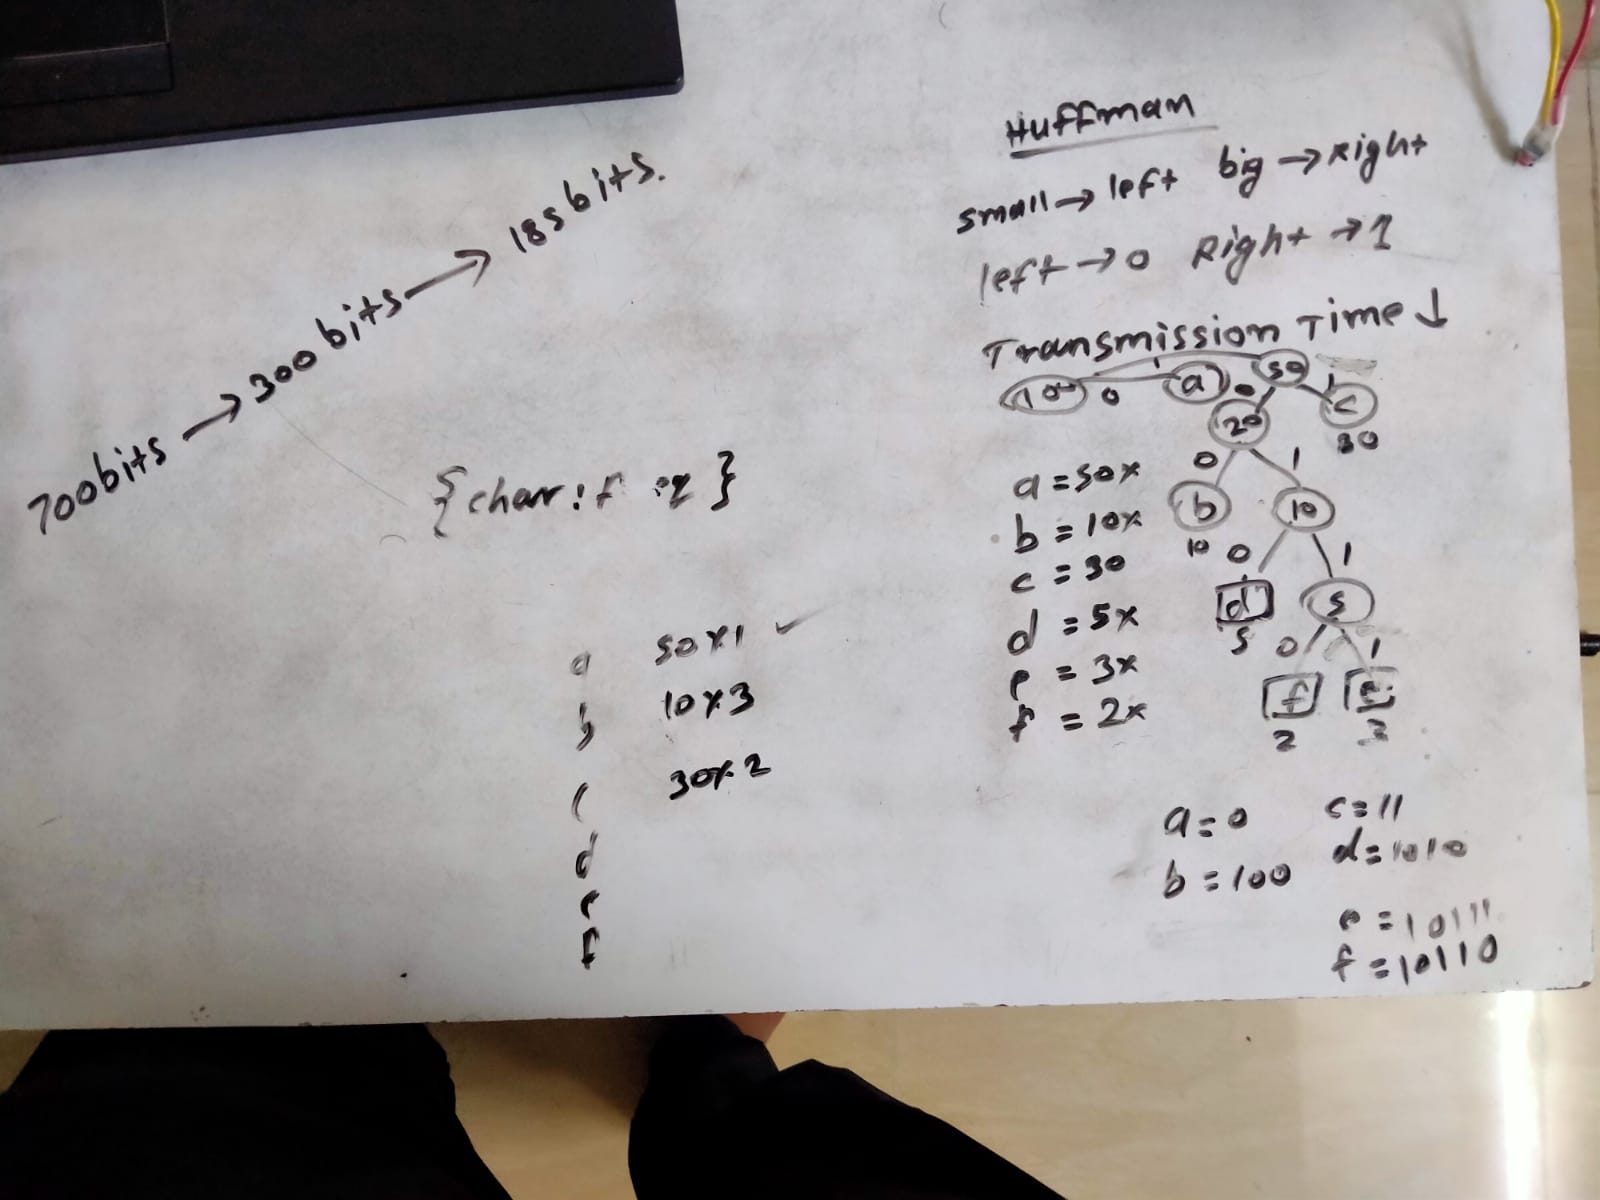 700bits → 300 bits → 185bits.
{char: f :q }
a 50x1 ✓
b 10x3
c 30x2
d
e
f
Huffman
small → left big → Right
left → 0 Right → 1
Transmission Time ↓
100 0 1 a 0 50 1 c
20 30
0 1
b 10
10 0 1
d 5
5 0 1
f e
2 3
a = 50x
b = 10x
c = 30
d = 5x
e = 3x
f = 2x
a = 0 c = 11
b = 100 d = 1010
e = 10111
f = 10110